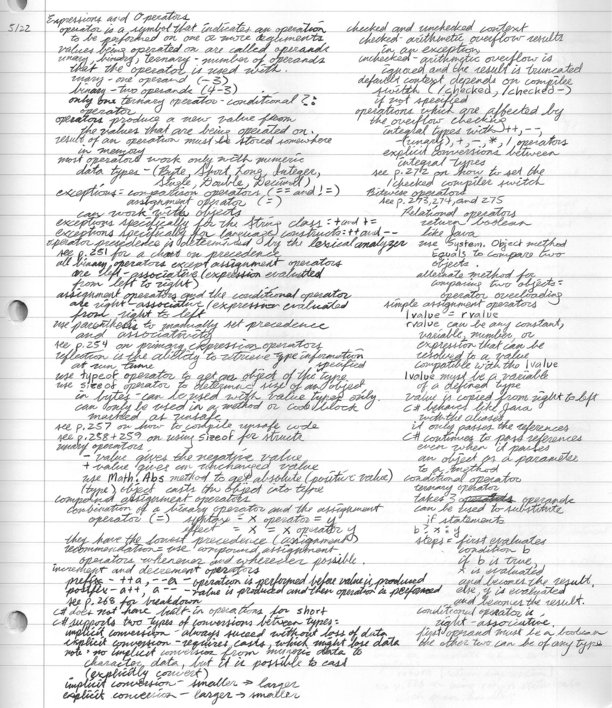 5/22
Expressions and Operators
operator is a symbol that indicates an operation
to be performed on one or more arguments
values being operated on are called operands
unary, binary, ternary - number of operands
that the operator is used with.
unary - one operand (-3)
binary - two operands (4-3)
only one ternary operator - conditional ?:
operator
operators produce a new value from
the values that are being operated on.
result of an operation must be stored somewhere
in memory
most operators work only with numeric
data types - (Byte, Short, Long, Integer,
Single, Double, Decimal)
exceptions = comparison operators (== and !=)
assignment operator (=)
can work with objects
exceptions specifically for the String class : + and +=
exceptions specifically for language constructs: ++ and --
operator precedence is determined by the lexical analyzer
see p. 251 for a chart on precedence
all binary operators except assignment operators
are left-associative (expression evaluated
from left to right)
assignment operators and the conditional operator
are right-associative (expression evaluated
from right to left
use parenthesis to manually set precedence
and associativity
see p. 254 on primary expression operators
reflection is the ability to retrieve type information
at run time
use typeof operator to get an object of the type specified
use sizeof operator to determine size of an object
in bytes - can be used with value types only.
can only be used in a method or code block
marked as unsafe
see p. 257 on how to compile unsafe code
see p. 258 + 259 on using sizeof for structs
unary operators
- value gives the negative value
+ value gives an unchanged value
use Math.Abs method to get absolute (positive value)
(type) object casts the object into type
compound assignment operators
combination of a binary operator and the assignment
operator (=) syntax = x operator = y
effect = x = x operator y
they have the lowest precedence (assignment)
recommendation = use compound assignment
operators whenever and wherever possible.
increment and decrement operators
prefix - ++a, --a - operation is performed before value is produced
postfix - a++, a-- - value is produced and then operation is performed
see p. 268 for breakdown
C# does not have built in operations for short
C# supports two types of conversions between types:
implicit conversion - always suceed without loss of data
explicit conversion - requires casts, which might lose data
note: no implicit conversion from numeric data to
character data, but it is possible to cast
(explicitly convert)
implicit conversion - smaller → larger
explicit conversion - larger → smaller
checked and unchecked context
checked - arithmetic overflow results
in an exception
unchecked - arithmetic overflow is
ignored and the result is truncated
default context depends on compiler
switch (/checked, /checked-)
if not specified
operations which are affected by
the overflow checking
integral types with ++, --,
- (unary), +, -, *, / operators
explicit conversions between
integral types
see p. 272 on how to set the
/checked compiler switch
Bitwise operators
see p. 273, 274, and 275
Relational operators
return boolean
like Java
use System.Object method
Equals to compare two
objects.
alternate method for
comparing two objects =
operator overloading
simple assignment operators
lvalue = rvalue
rvalue can be any constant,
variable, number, or
expression that can be
resolved to a value
compatible with the lvalue
lvalue must be a variable
of a defined type
value is copied from right to left
C# behaves like Java
with the aliased
it only passes the references
C# continues to pass references
even when it passes
an object as a parameter
to a method
conditional operator
ternary operator
takes 3 operands
can be used to substitute
if statements
b ? x : y
steps = first evaluates
condition b
if b is true,
x is evaluated
and becomes the result,
else, y is evaluated
and becomes the result.
conditional operator is
right-associative.
first operand must be a boolean
the other two can be of any types